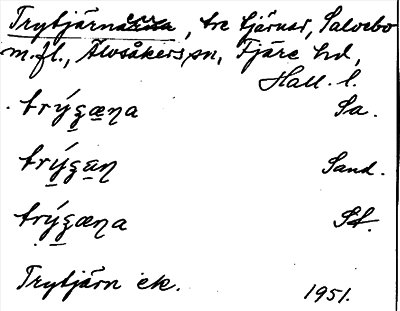 Trytjärnarna, tre tjärnar, Salvebo
m.fl., Älvsåkers sn, Fjäre hd,
Hall. l.
trýʒæna Sa.
trýʒæn Sand.
trýʒæna St.
Trytjärn etc. 1951.